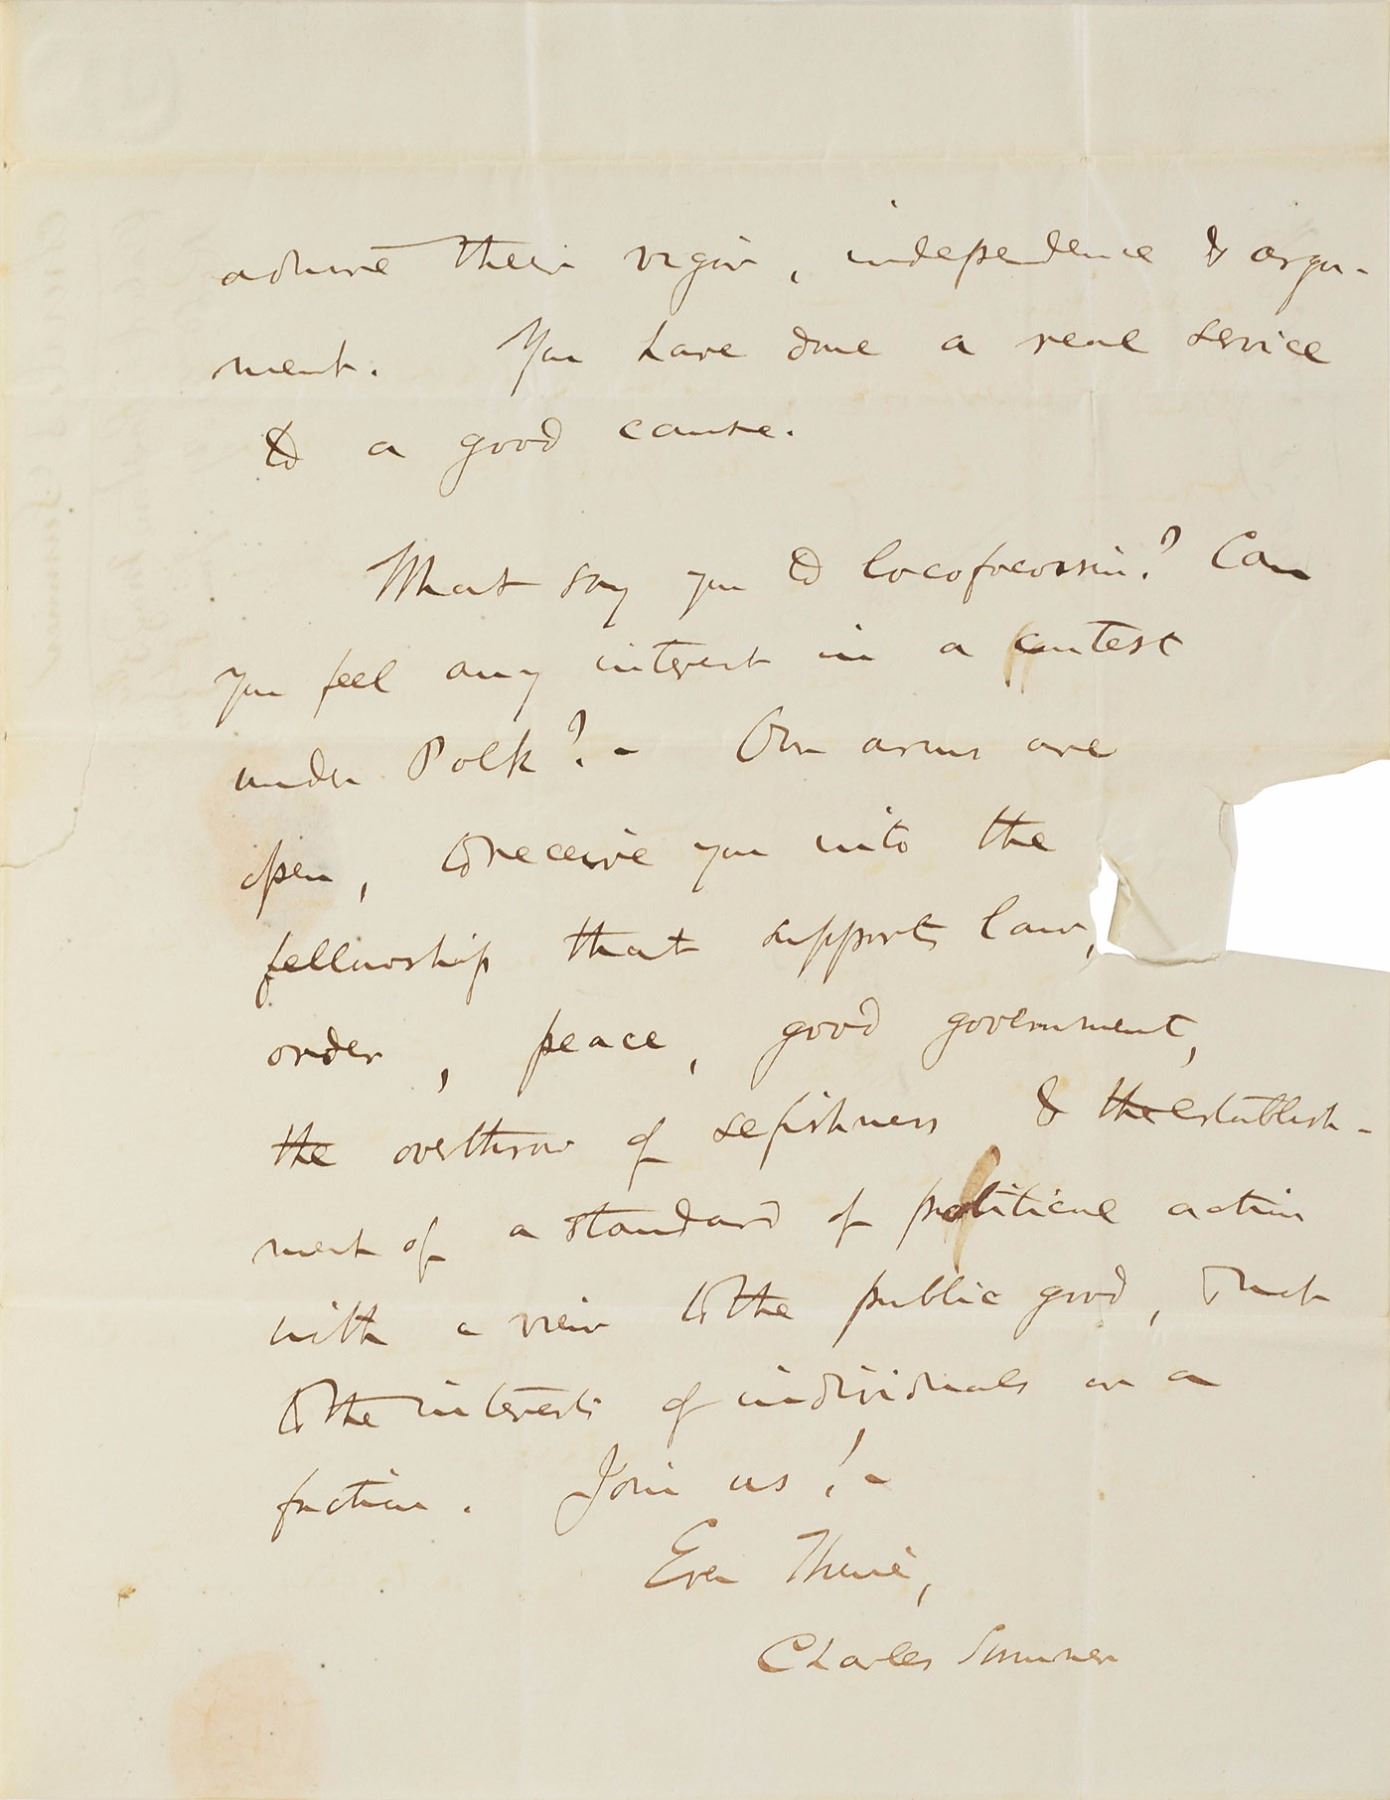 admire their vigor, independence & argu-
ment. You have done a real service
to a good cause.
What say you to Locofocoism? Can
you feel any interest in a contest
under Polk? - Our arms are
open, to receive you into the
fellowship that supports law,
order, peace, good government,
the overthrow of selfishness & the establish-
ment of a standard of political action
with a view to the public good, & not
to the interests of individuals or a
faction. Join us! -
Ever Thine,
Charles Sumner